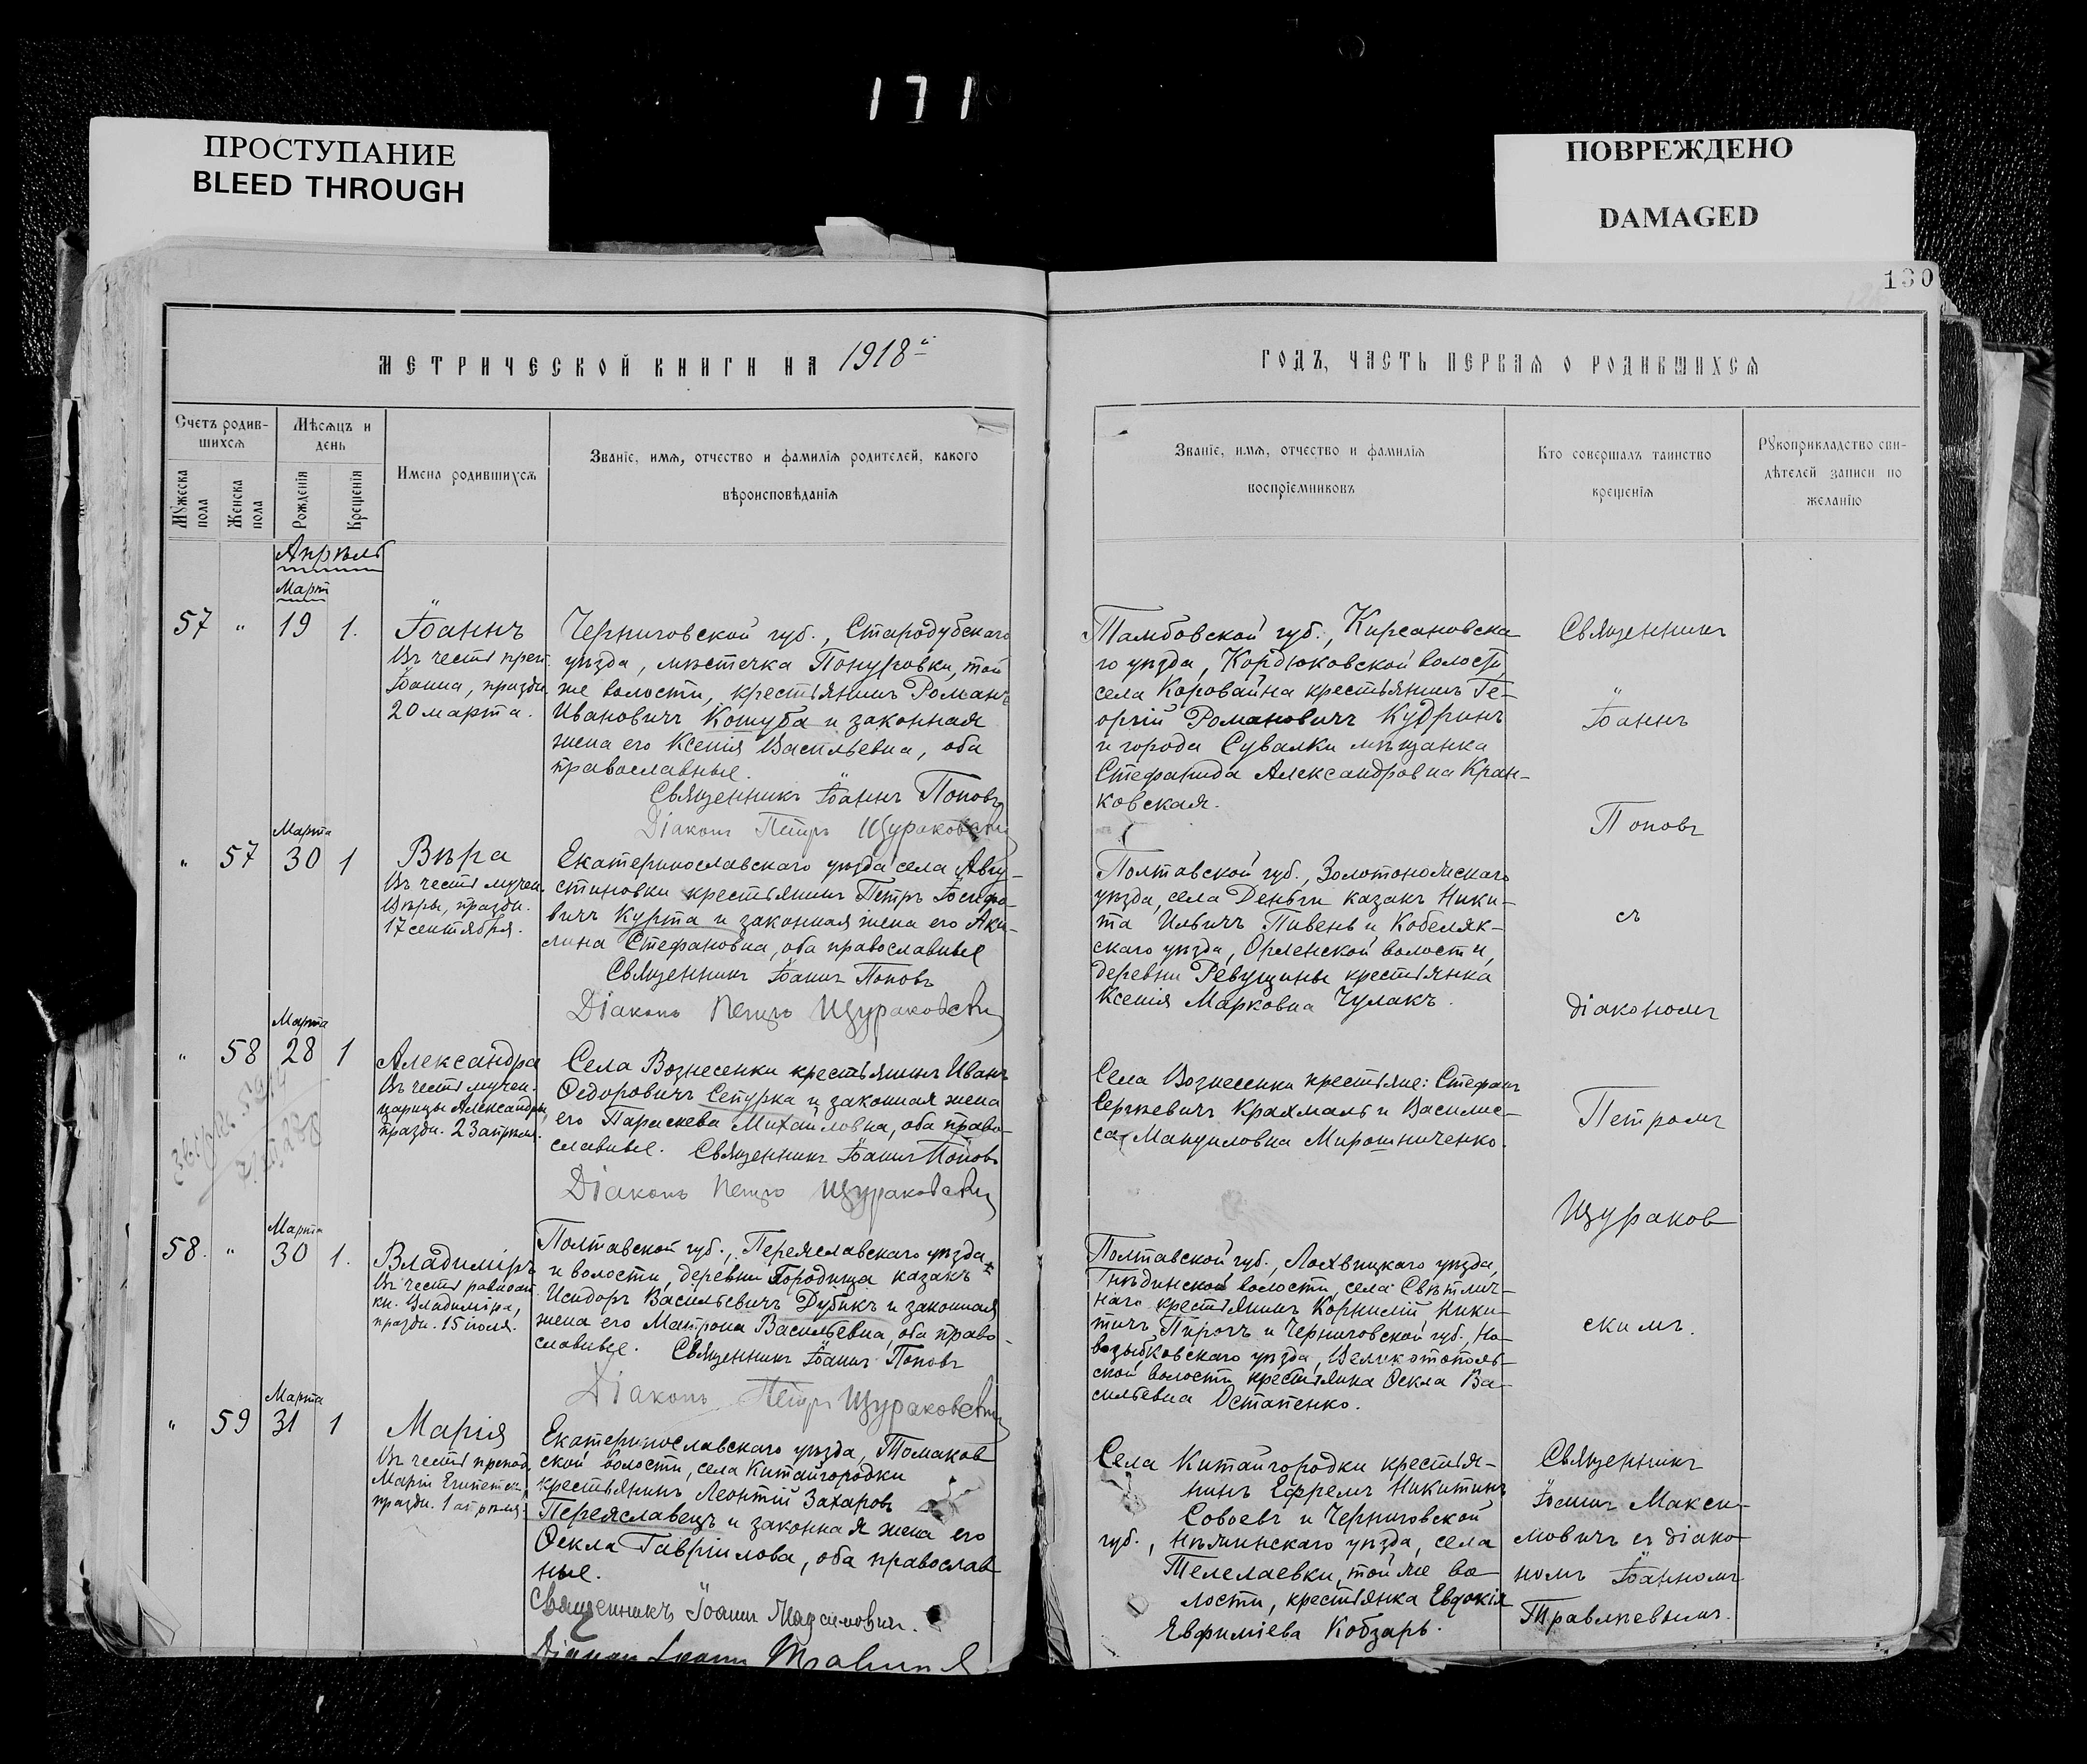 171
ПРОСТУПАНИЕ
BLEED THROUGH
ПОВРЕЖДЕНО
DAMAGED
130
МЕТРИЧЕСКОЙ КНИГИ НА 1918й
ГОДЪ, ЧАСТЬ ПЕРВАЯ О РОДИВШИХСЯ
Счетъ родив-
шихся
Мѣсяцъ и
день
Мужеска
пола
Женска
пола
Рожденія
Крещенія
Имена родившихся
Званіе, имя, отчество и фамилія родителей, какого
вѣроисповѣданія
Званіе, имя, отчество и фамилія
воспріемниковъ
Кто совершалъ таинство
крещенія
Рукоприкладство сви-
дѣтелей записи по
желанію
Апрѣль
Март
57 " 19 1.
Іоаннъ
Въ честь преп.
Іоанна, праздн.
20 марта.
Черниговской губ., Стародубскаго
уѣзда, мѣстечка Понуровки, той
же волости, крестьянинъ Романъ
Ивановичъ Кошуба и законная
жена его Ксенія Васильевна, оба
православные.
Священникъ Іоаннъ Поповъ
Діаконъ Петръ Щураковскій
Тамбовской губ., Кирсановска-
го уѣзда, Кордюковской волости,
села Коровайна крестьянинъ Ге-
оргій Романовичъ Кудринъ
и города Сувалки мѣщанка
Стефанида Александровна Кран-
ковская.
Священникъ
Іоаннъ
Поповъ
съ
діакономъ
Петромъ
Щураков
скимъ.
Марта
" 57 30 1
Вѣра
Въ честь мучен.
Вѣры, праздн.
17 сентября.
Екатеринославскаго уѣзда села Авгу-
стиновки крестьянинъ Петръ Іосифо-
вичъ Курта и законная жена его Аки-
лина Стефановна, оба православные
Священникъ Іоаннъ Поповъ
Діаконъ Петръ Щураковскій
Полтавской губ., Золотоношскаго
уѣзда, села Деньги казакъ Ники-
та Ильичъ Пивень и Кобеляк-
скаго уѣзда, Орленской волости,
деревни Ревущины крестьянка
Ксенія Марковна Чулакъ.
Марта
" 58 28 1
Александра
Въ честь мучен.
царицы Александры,
праздн. 23 апрѣля.
Села Вознесенки крестьянинъ Иванъ
Ѳедоровичъ Сепурка и законная жена
его Параскева Михайловна, оба право-
славные. Священникъ Іоаннъ Поповъ
Діаконъ Петръ Щураковскій
Села Вознесенки крестьяне: Стефанъ
Сергѣевичъ Крахмаль и Василис-
са Мануиловна Мирошниченко.
Марта
58. " 30 1.
Владиміръ
Въ честь равноап.
кн. Владиміра,
праздн. 15 іюля.
Полтавской губ., Переяславскаго уѣзда
и волости, деревни Городища казакъ
Исидоръ Васильевичъ Дубикъ и законная
жена его Матрона Васильевна, оба право-
славные. Священникъ Іоаннъ Поповъ
Діаконъ Петръ Щураковскій
Полтавской губ., Лохвицкаго уѣзда,
Гнѣдинской волости, села Свѣтлич-
наго крестьянинъ Корнилій Ники-
тичъ Пирогъ и Черниговской губ., Но-
возыбковскаго уѣзда, Великотополь-
ской волости крестьянка Ѳекла Ва-
сильевна Остапенко.
Марта
" 59 31 1
Марія
Въ честь препод.
Маріи Египетск.,
праздн. 1 апрѣля.
Екатеринославскаго уѣзда, Томаков
ской волости, села Китайгородки
крестьянинъ Леонтій Захаровъ
Переяславецъ и законная жена его
Ѳекла Гавріилова, оба православ
ные.
Священникъ Іоаннъ Максимовичъ.
Діаконъ Іоаннъ
Села Китайгородки крестья-
нинъ Ефремъ Никитинъ
Совоевъ и Черниговской
губ., Нѣжинскаго уѣзда, села
Телелаевки, той же во-
лости, крестьянка Евдокія
Евфиміева Кобзарь.
Священникъ
Іоаннъ Макси-
мовичъ съ діако-
номъ Іоанномъ
Травлѣевымъ.